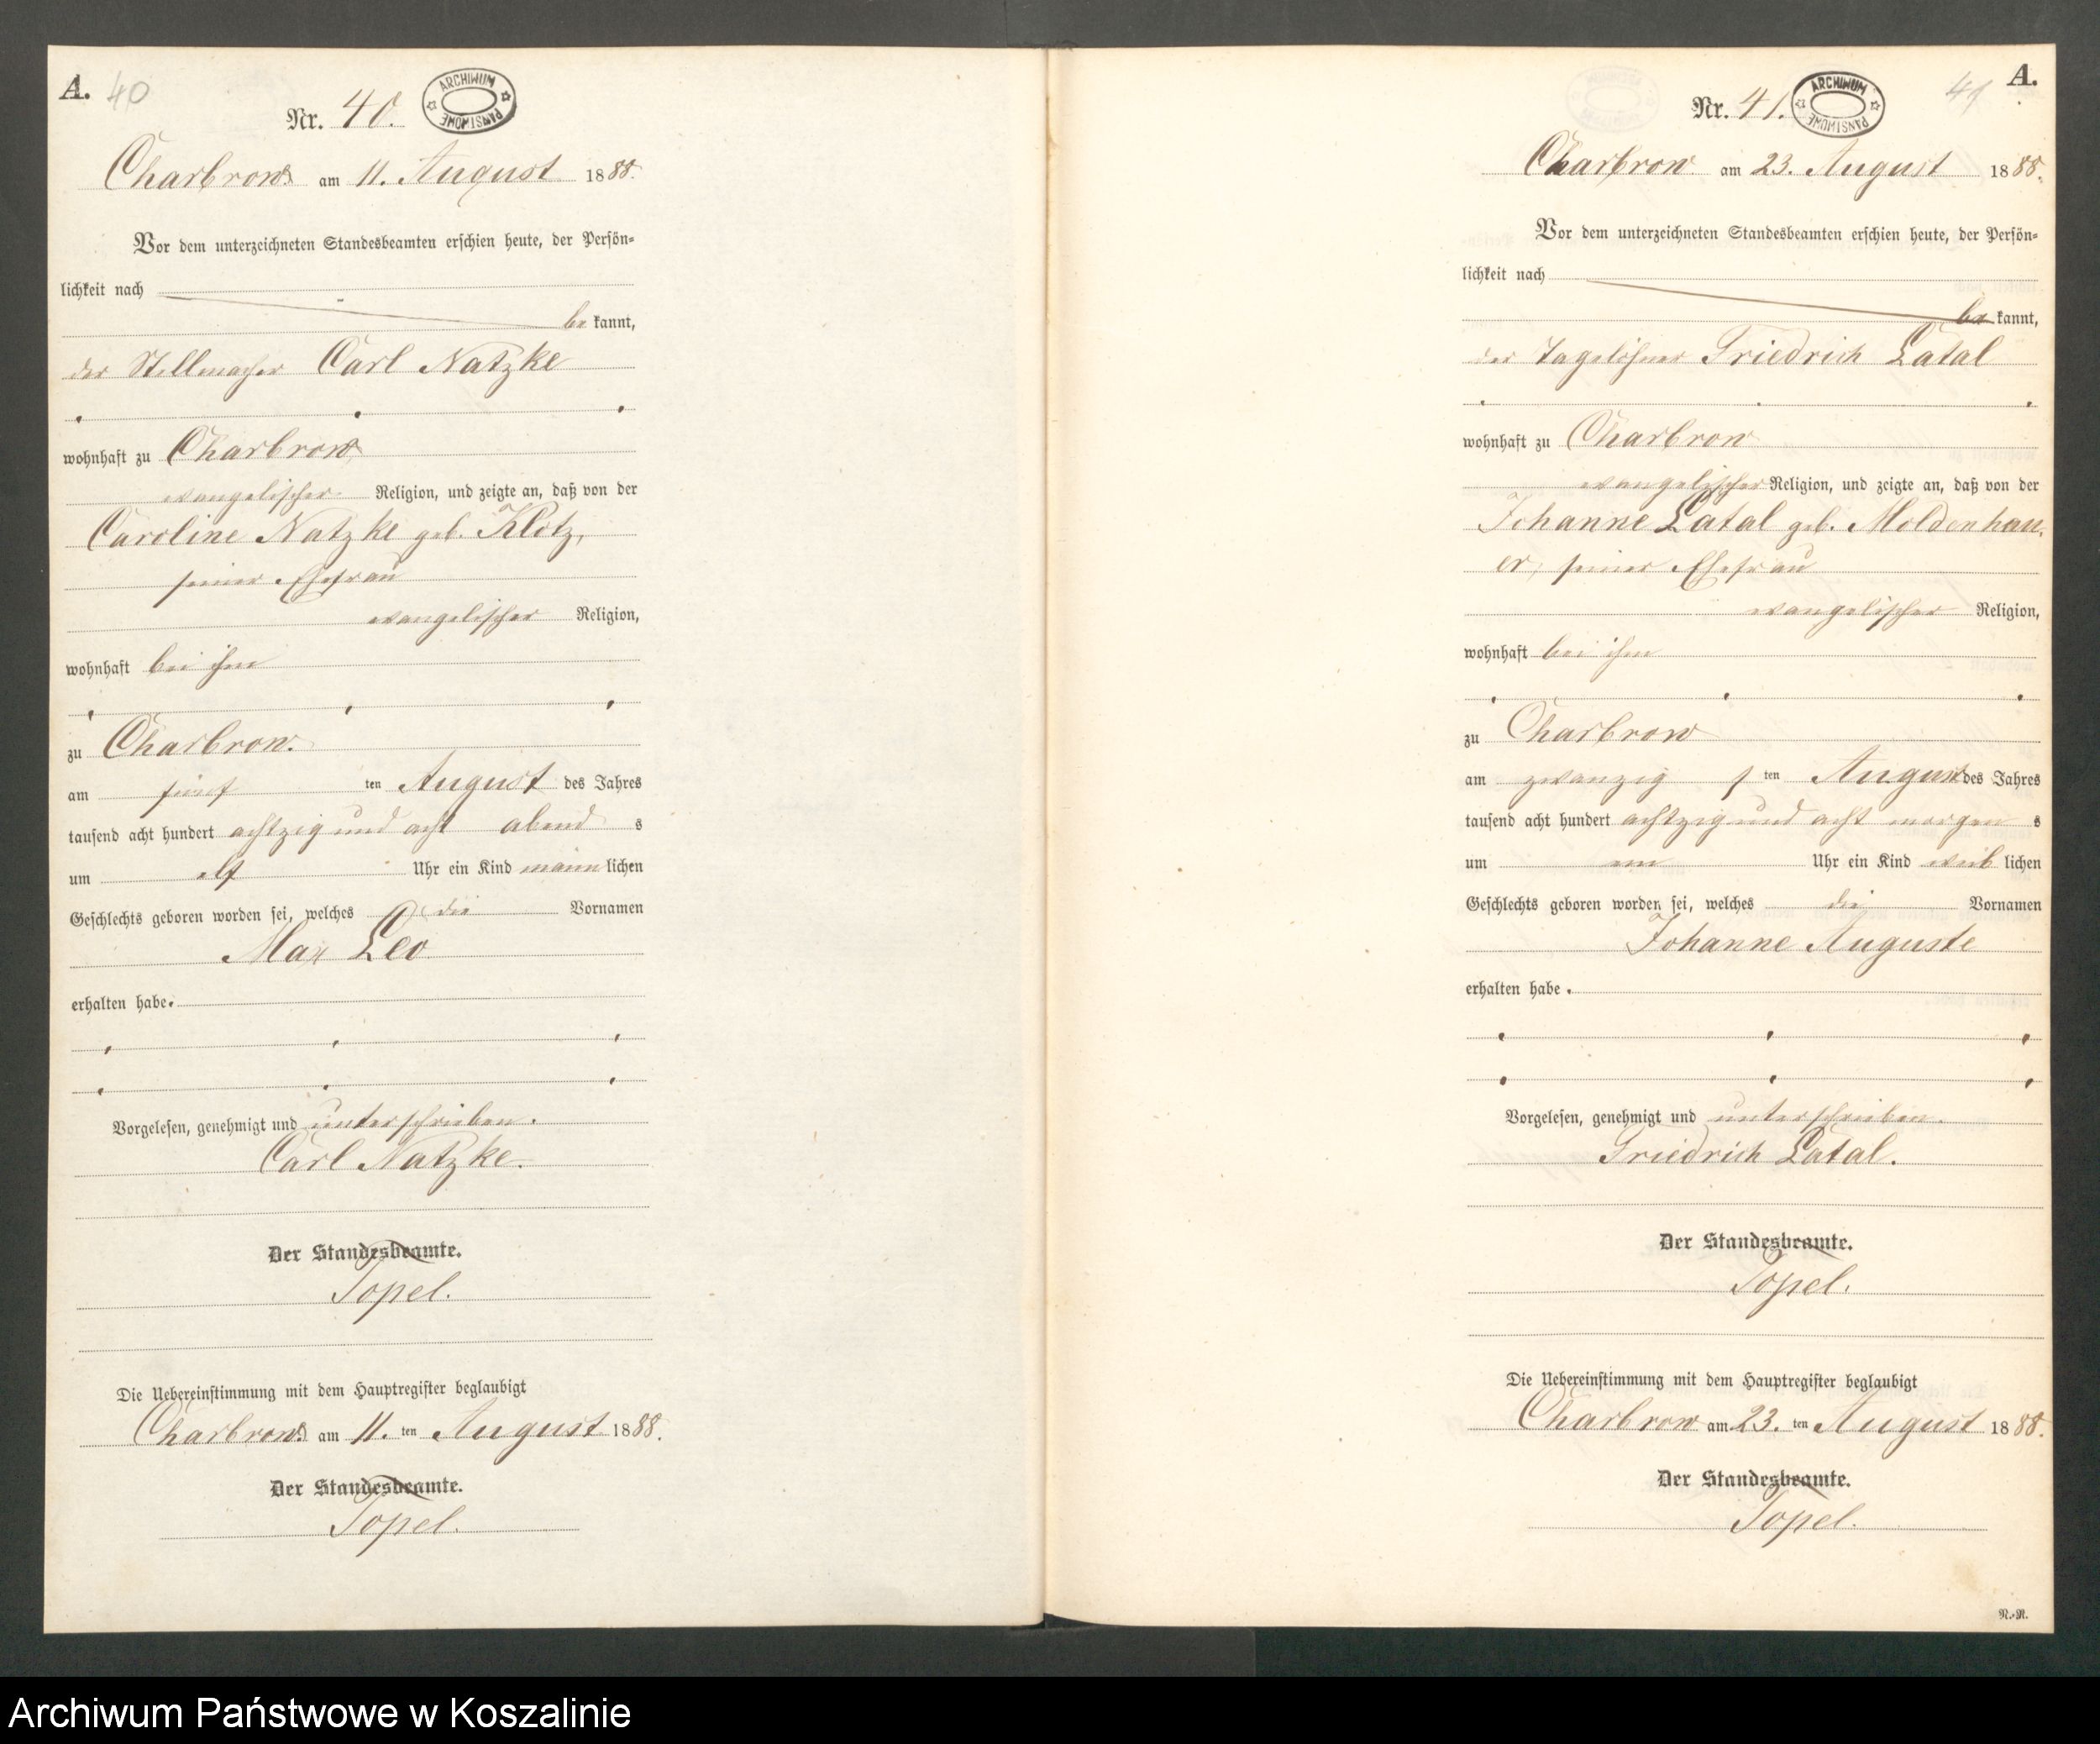 A. 40
Nr. 40.
ARCHIWUM PAŃSTWOWE
Charbrow am 11. August 1888.
Vor dem unterzeichneten Standesbeamten erschien heute, der Persön-
lichkeit nach
be kannt,
der Stellmacher Carl Natzke
wohnhaft zu Charbrow
evangelischer Religion, und zeigte an, daß von der
Caroline Natzke geb. Klotz,
seiner Ehefrau
evangelischer Religion,
wohnhaft bei ihm
zu Charbrow.
am fünf ten August des Jahres
tausend acht hundert achtzig und acht abend s
um elf Uhr ein Kind männ lichen
Geschlechts geboren worden sei, welches die Vornamen
Max Leo
erhalten habe.
Vorgelesen, genehmigt und unterschrieben.
Carl Natzke.
Der Standesbeamte.
Topel.
Die Uebereinstimmung mit dem Hauptregister beglaubigt
Charbrow am 11. ten August 1888.
Der Standesbeamte.
Topel.
41 A.
Nr. 41.
ARCHIWUM PAŃSTWOWE
Charbrow am 23. August 1888.
Vor dem unterzeichneten Standesbeamten erschien heute, der Persön-
lichkeit nach
be kannt,
der Tagelöhner Friedrich Latal
wohnhaft zu Charbrow
evangelischer Religion, und zeigte an, daß von der
Johanne Latal geb. Moldenhau-
er, seiner Ehefrau
evangelischer Religion,
wohnhaft bei ihm
zu Charbrow
am zwanzig s ten August des Jahres
tausend acht hundert achtzig und acht morgen s
um Uhr ein Kind weib lichen
Geschlechts geboren worden sei, welches die Vornamen
Johanne Auguste
erhalten habe.
Vorgelesen, genehmigt und unterschrieben.
Friedrich Latal.
Der Standesbeamte.
Topel.
Die Uebereinstimmung mit dem Hauptregister beglaubigt
Charbrow am 23. ten August 1888.
Der Standesbeamte.
Topel.
N.-N.
Archiwum Państwowe w Koszalinie